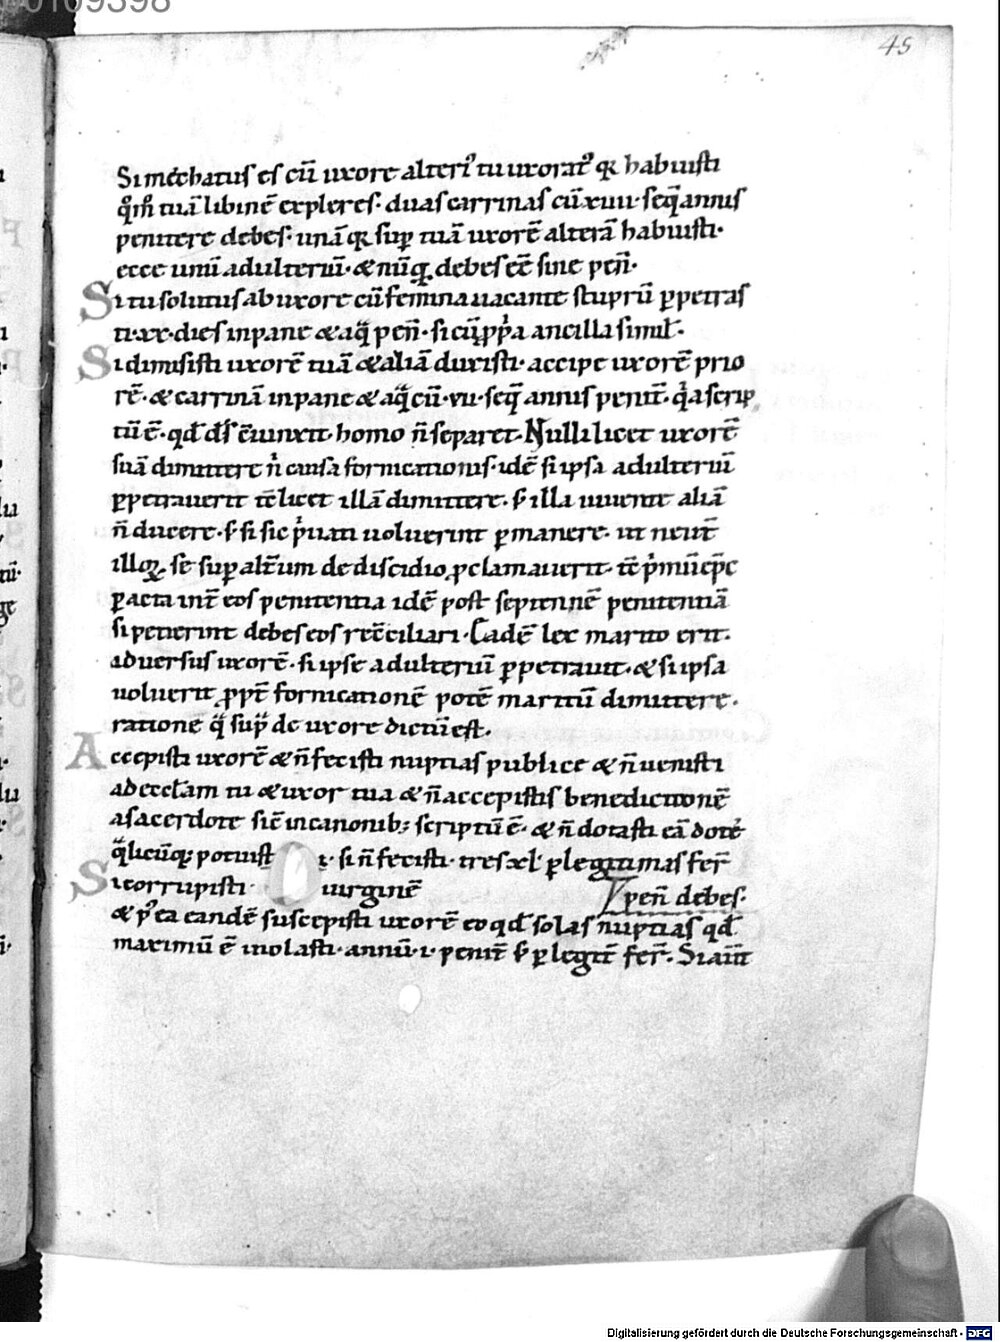 00109398
45
Si męchatus es cū uxore alteriꝰ tu uxoratꝰ qꝛ habuisti
qͦm̄ tuā libinē expleres. duas carrinas cū xiiii. seq̄ annis
penitere debes. unā qꝛ sup tuā uxorē alterā habuisti.
ecce unū adulteriū. & nūq̄ debes eē sine pen̄.
Si tu solutus ab uxore cū femina uacante stuprū ꝑpetras
ti. xx. dies in pane & aq̄ pen̄. si cū ꝓpͥa ancilla simil̄.
Si dimisisti uxorē tuā & aliā duxisti. accipe uxorē prio
rē. & carrinā in pane & aq̄ cū vii. seq̄ annis penit̄. qͥa scrip
tū ē. qd̄ d̄s c̄iunxit. homo n̄ separet. Nulli licet uxorē
suā dimittere n̄ causa fornicationis. idē si ipsa adulteriū
ꝑpetrauerit t̄c licet illā dimittere. s̄ illa uiuente aliā
n̄ ducere. s̄ si sic pͥuati uoluerint ꝑmanere. ut neut̄
illoꝝ se sup alt̄um de discidio ꝓclamauerit. t̄c
ꝑacta int̄ eos penitentia idē post septennē penitentiā
si petierint debes eos rec̄ciliari. Eadē lex marito erit.
aduersus uxorē. si ipse adulteriū ꝑpetrauit. & si ipsa
uoluerit ꝓpt̄ fornicationē potē maritū dimittere.
ratione q̄ supͣ de uxore dictū est.
Accepisti uxorē & n̄ fecisti nuptias publice & n̄ uenisti
ad eccl̄am tu & uxor tua & n̄ accepistis benedictionē
a sacerdote sic̄ in canonib; scriptū ē. & n̄ dotasti eā dote
q̄licūq; potuisti. si n̄ fecisti. tres xl̄ ꝑ legitimas fer̄
Si corrupisti uirginē pen̄ debes.
& pꝰea eandē suscepisti uxorē eo qd̄ solas nuptias qd̄
maximū ē uiolasti. annū .i. penit̄ ꝑ legit̄ fer̄. Si aūt̄
Digitalisierung gefördert durch die Deutsche Forschungsgemeinschaft - DFG